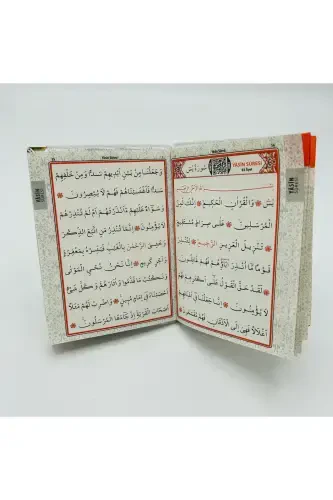 Yasin Suresi
YASİN SURESİ
83 Ayet
سُورَةُ يٰسٓ
يٰسٓ وَالْقُرْاٰنِ الْحَكِيمِ اِنَّكَ لَمِنَ
الْمُرْسَلِينَ عَلٰى صِرَاطٍ مُسْتَقِيمٍ
تَنْزِيلَ الْعَزِيزِ الرَّحِيمِ لِتُنْذِرَ
قَوْمًا مَٓا اُنْذِرَ اٰبَٓاؤُ۬هُمْ فَهُمْ غَافِلُونَ
لَقَدْ حَقَّ الْقَوْلُ عَلٰٓى اَكْثَرِهِمْ فَهُمْ
لَا يُؤْمِنُونَ اِنَّا جَعَلْنَا فِٓى اَعْنَاقِهِمْ
اَغْلَالًا فَهِىَ اِلَى الْاَذْقَانِ فَهُمْ مُقْمَحُونَ
YASİN
Yasin Suresi
وَجَعَلْنَا مِنْ بَيْنِ اَيْدِيهِمْ سَدًّا وَمِنْ خَلْفِهِمْ
سَدًّا فَاَغْشَيْنَاهُمْ فَهُمْ لَا يُبْصِرُونَ
وَسَوَٓاءٌ عَلَيْهِمْ ءَاَنْذَرْتَهُمْ اَمْ لَمْ تُنْذِرْهُمْ
لَا يُؤْمِنُونَ اِنَّمَا تُنْذِرُ مَنِ اتَّبَعَ الذِّكْرَ
وَخَشِىَ الرَّحْمٰنَ بِالْغَيْبِ فَبَشِّرْهُ بِمَغْفِرَةٍ
وَاَجْرٍ كَرِيمٍ اِنَّا نَحْنُ نُحْيِى الْمَوْتٰى
وَنَكْتُبُ مَا قَدَّمُوا وَاٰثَارَهُمْ وَكُلَّ شَىْءٍ
اَحْصَيْنَاهُ فِٓى اِمَامٍ مُبِينٍ وَاضْرِبْ لَهُمْ مَثَلًا
اَصْحَابَ الْقَرْيَةِ اِذْ جَٓاءَهَا الْمُرْسَلُونَ
YASİN